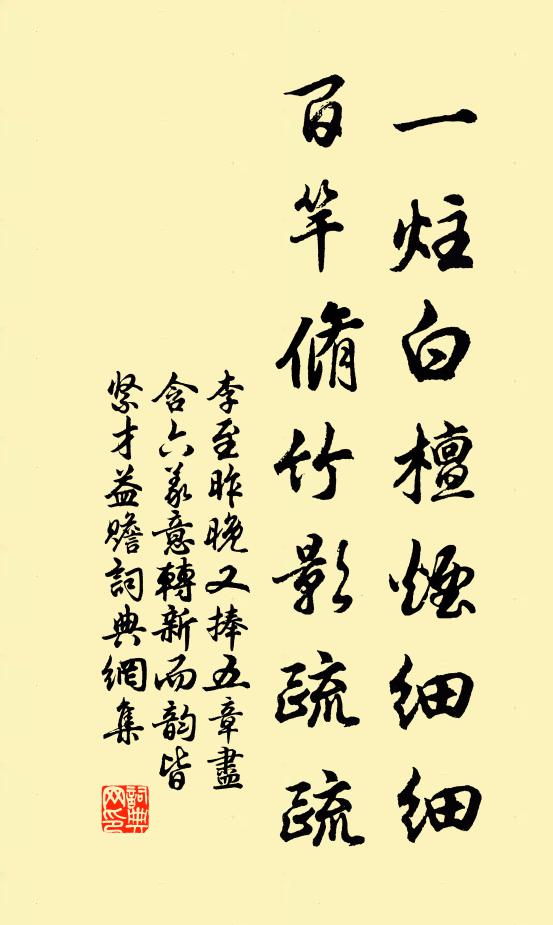 一炷白檀煙細細
百竿脩竹影疏疏
李至昨晚又捧五章盡
含六義意轉新而韵皆
緊才益贍詞典網集
詞典
网印